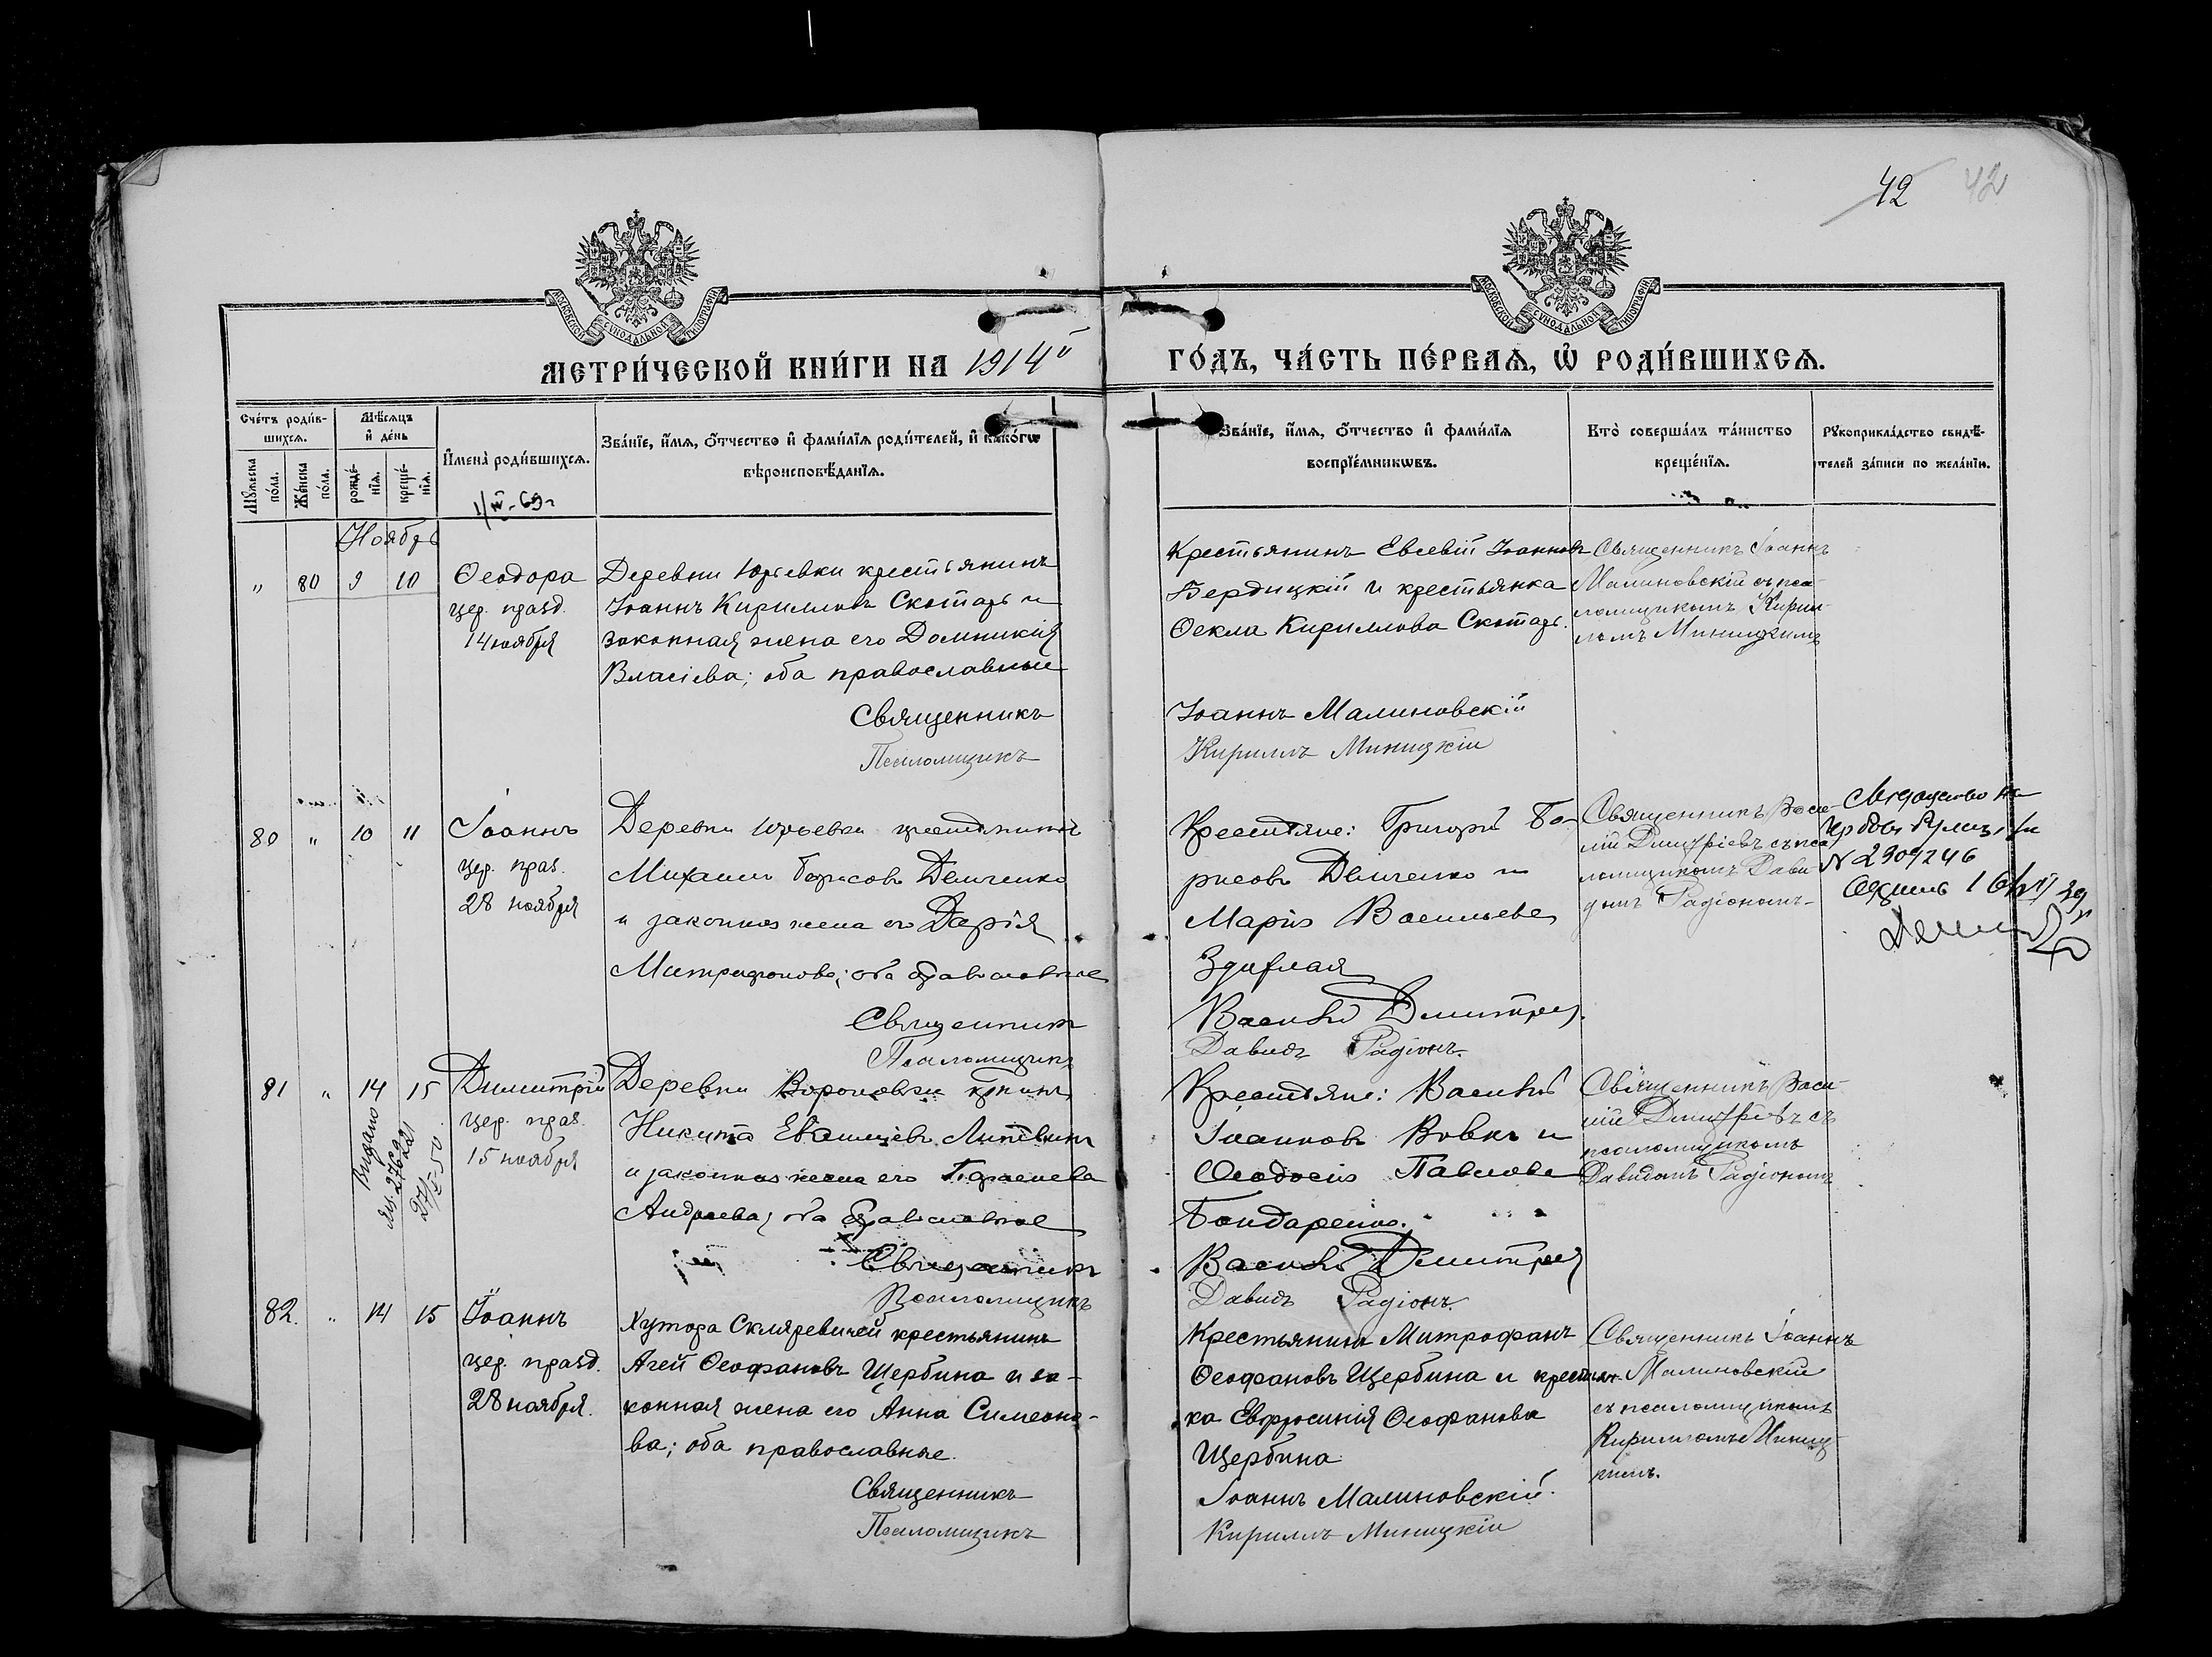 42 42
МОСКОВСКОЙ СУНОДАЛЬНОЙ ТИПОГРАФІИ
МОСКОВСКОЙ СУНОДАЛЬНОЙ ТИПОГРАФІИ
МЕТРИ́ЧЕСКОЙ КНИ́ГИ НА 1914й
ГО́ДЪ, ЧА́СТЬ ПЕ́РВАѦ, Ѽ РОДИ́ВШИХСѦ.
Сче́тъ роди́в-
шихсѧ.
Мꙋ́жеска
по́ла.
Же́нска
по́ла.
Мѣ́сѧцъ
и҆ де́нь
рожде́-
нїѧ.
креще́-
нїѧ.
И҆мена̀ роди́вшихсѧ.
Зва́нїе, и҆́мѧ, ѻ҆́тчество и҆ фами́лїѧ роди́телей, и҆ како́гѡ
вѣроисповѣ́данїѧ.
Зва́нїе, и҆́мѧ, ѻ҆́тчество и҆ фами́лїѧ
воспрїе́мникѡвъ.
Кто̀ соверша́лъ та́инство
креще́нїѧ.
Рꙋкоприкла́дство свидѣ́-
телей за́писи по жела́нїю.
Ноябрь
" 80 9 10
Ѳеодора
цер. празд.
14 ноября
Деревни Юрьевки крестьянинъ
Іоаннъ Кирилловъ Скотарь и
законная жена его Домникія
Власіева; оба православные
Священникъ
Псаломщикъ
Крестьянинъ Евсевій Іоанновъ
Бердицкій и крестьянка
Ѳекла Кириллова Скотарь.
Іоаннъ Малиновскій
Кириллъ Миницкій
Священникъ Іоаннъ
Малиновскій съ пса-
ломщикомъ Кирил-
ломъ Миницкимъ
80 " 10 11
Іоаннъ
цер. праз.
28 ноября
Деревни Юрьевки крестьянинъ
Михаилъ Борисовъ Демченко
и законная жена его Дарія
Митрофанова; оба православные
Священникъ
Псаломщикъ
Крестьяне: Григорій Бо-
рисовъ Демченко и
Марія Васильева
Василій Дмитріев
Давидъ Радіонъ.
Священникъ Васи-
лій Дмитріевъ съ пса-
ломщикомъ Дави-
домъ Радіономъ
№ 2909246
81 " 14 15
Видано
276921
27/X-50
Димитрій
цер. праз.
15 ноября
Деревни Вороновки кр-нинъ
Никита
и законная жена его
Андреева; оба православные
Священникъ
Псаломщикъ
Крестьяне: Василій
Іоанновъ Вовкъ и
Ѳеодосія Павлова
Бондаренко.
Василій Дмитріев
Давидъ Радіонъ.
Священникъ Васи-
лій Дмитріевъ съ
псаломщикомъ
Давидомъ Радіономъ
82. " 14 15
Іоаннъ
цер. празд.
28 ноября.
Хутора Скляревичей крестьянинъ
Агей Ѳеофановъ Щербина и за-
конная жена его Анна Симеоно-
ва; оба православные.
Священникъ
Псаломщикъ
Крестьянинъ Митрофанъ
Ѳеофановъ Щербина и крестьян-
ка Евфросинія Ѳеофанова
Щербина
Іоаннъ Малиновскій.
Кириллъ Миницкій
Священникъ Іоаннъ
Малиновскій
съ псаломщикомъ
Кирилломъ Миниц-
кимъ.